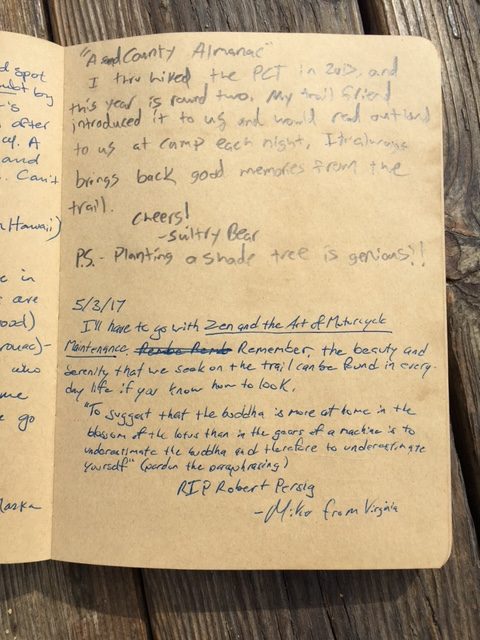 d spot
boy
r's
after
A
and
Can't
Hawaii)
e in
are
ood)
who
me
go
laska
"A Sand County Almanac"
I thru hiked the PCT in 2013, and
this year is round two. My trail friend
introduced it to us and would read out loud
to us at camp each night. It always
brings back good memories from the
trail.
Cheers!
-Sultry Bear
P.S.- Planting a shade tree is genious!!
5/3/17
I'll have to go with Zen and the Art of Motorcycle
Maintenance Remember, the beauty and
serenity that we seek on the trail can be found in every-
day life if you know how to look.
"To suggest that the buddha is more at home in the
blossom of the lotus than in the gears of a machine is to
underestimate the buddha and therefore to underestimate
yourself" (pardon the paraphrasing)
RIP Robert Persig
-Mike from Virginia